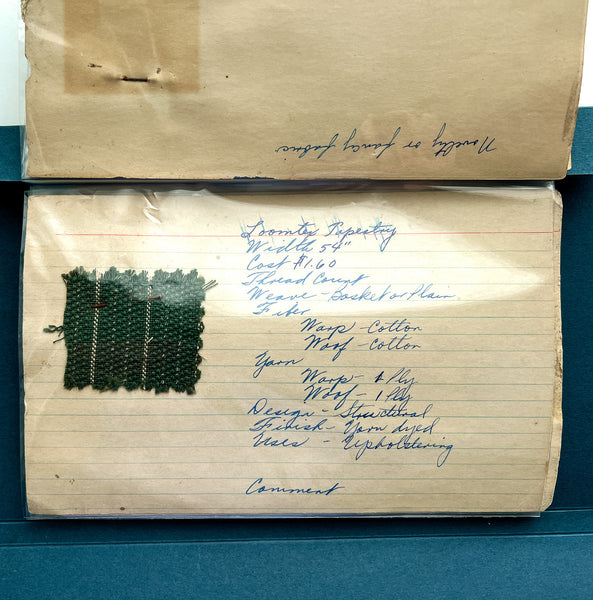 Novelty or fancy fabric
Loomtex Tapestry
Width 54"
Cost $1.60
Thread Count
Weave - Basket or Plain.
Fiber
Warp - Cotton
Woof - Cotton
Yarn
Warp - Ply
Woof - 1 Ply
Design - Structural
Finish - Yarn dyed
Uses - Upholstering
Comment